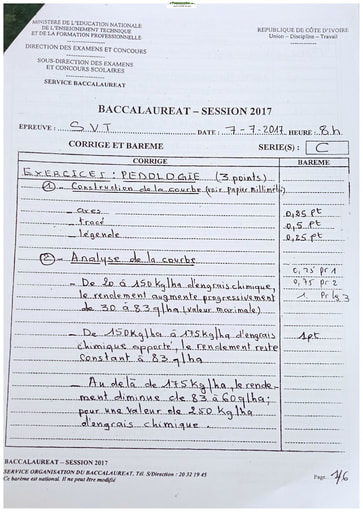 MINISTERE DE L'EDUCATION NATIONALE
DE L'ENSEIGNEMENT TECHNIQUE
ET DE LA FORMATION PROFESSIONNELLE
DIRECTION DES EXAMENS ET CONCOURS
SOUS-DIRECTION DES EXAMENS
ET CONCOURS SCOLAIRES
SERVICE BACCALAUREAT
REPUBLIQUE DE CÔTE D'IVOIRE
Union – Discipline – Travail
BACCALAUREAT – SESSION 2017
EPREUVE : SVT DATE : 7-7-2017 HEURE : 8h
CORRIGE ET BAREME SERIE(S) : C
CORRIGE BAREME
EXERCICE 1 : PEDOLOGIE (3 points)
① - Construction de la courbe (voir papier millimétré)
- axes 0,25 pt
- tracé 0,5 pt
- légende 0,25 pt
② - Analyse de la courbe
0,75 pr 1
- De 20 à 150 kg/ha d'engrais chimique, 0,75 pr 2
le rendement augmente progressivement 1 pr lg 3
de 30 à 83 q/ha (valeur maximale)
- De 150 kg/ha à 175 kg/ha d'engrais 1pt
chimique apporté, le rendement reste
constant à 83 q/ha
- Au delà de 175 kg/ha, le rende-
ment diminue de 83 à 60 q/ha;
pour une valeur de 250 kg/ha
d'engrais chimique.
BACCALAUREAT – SESSION 2017
SERVICE ORGANISATION DU BACCALAUREAT, Tél. S/Direction : 20 32 19 45
Ce barème est national. Il ne peut être modifié
Page. 1/6